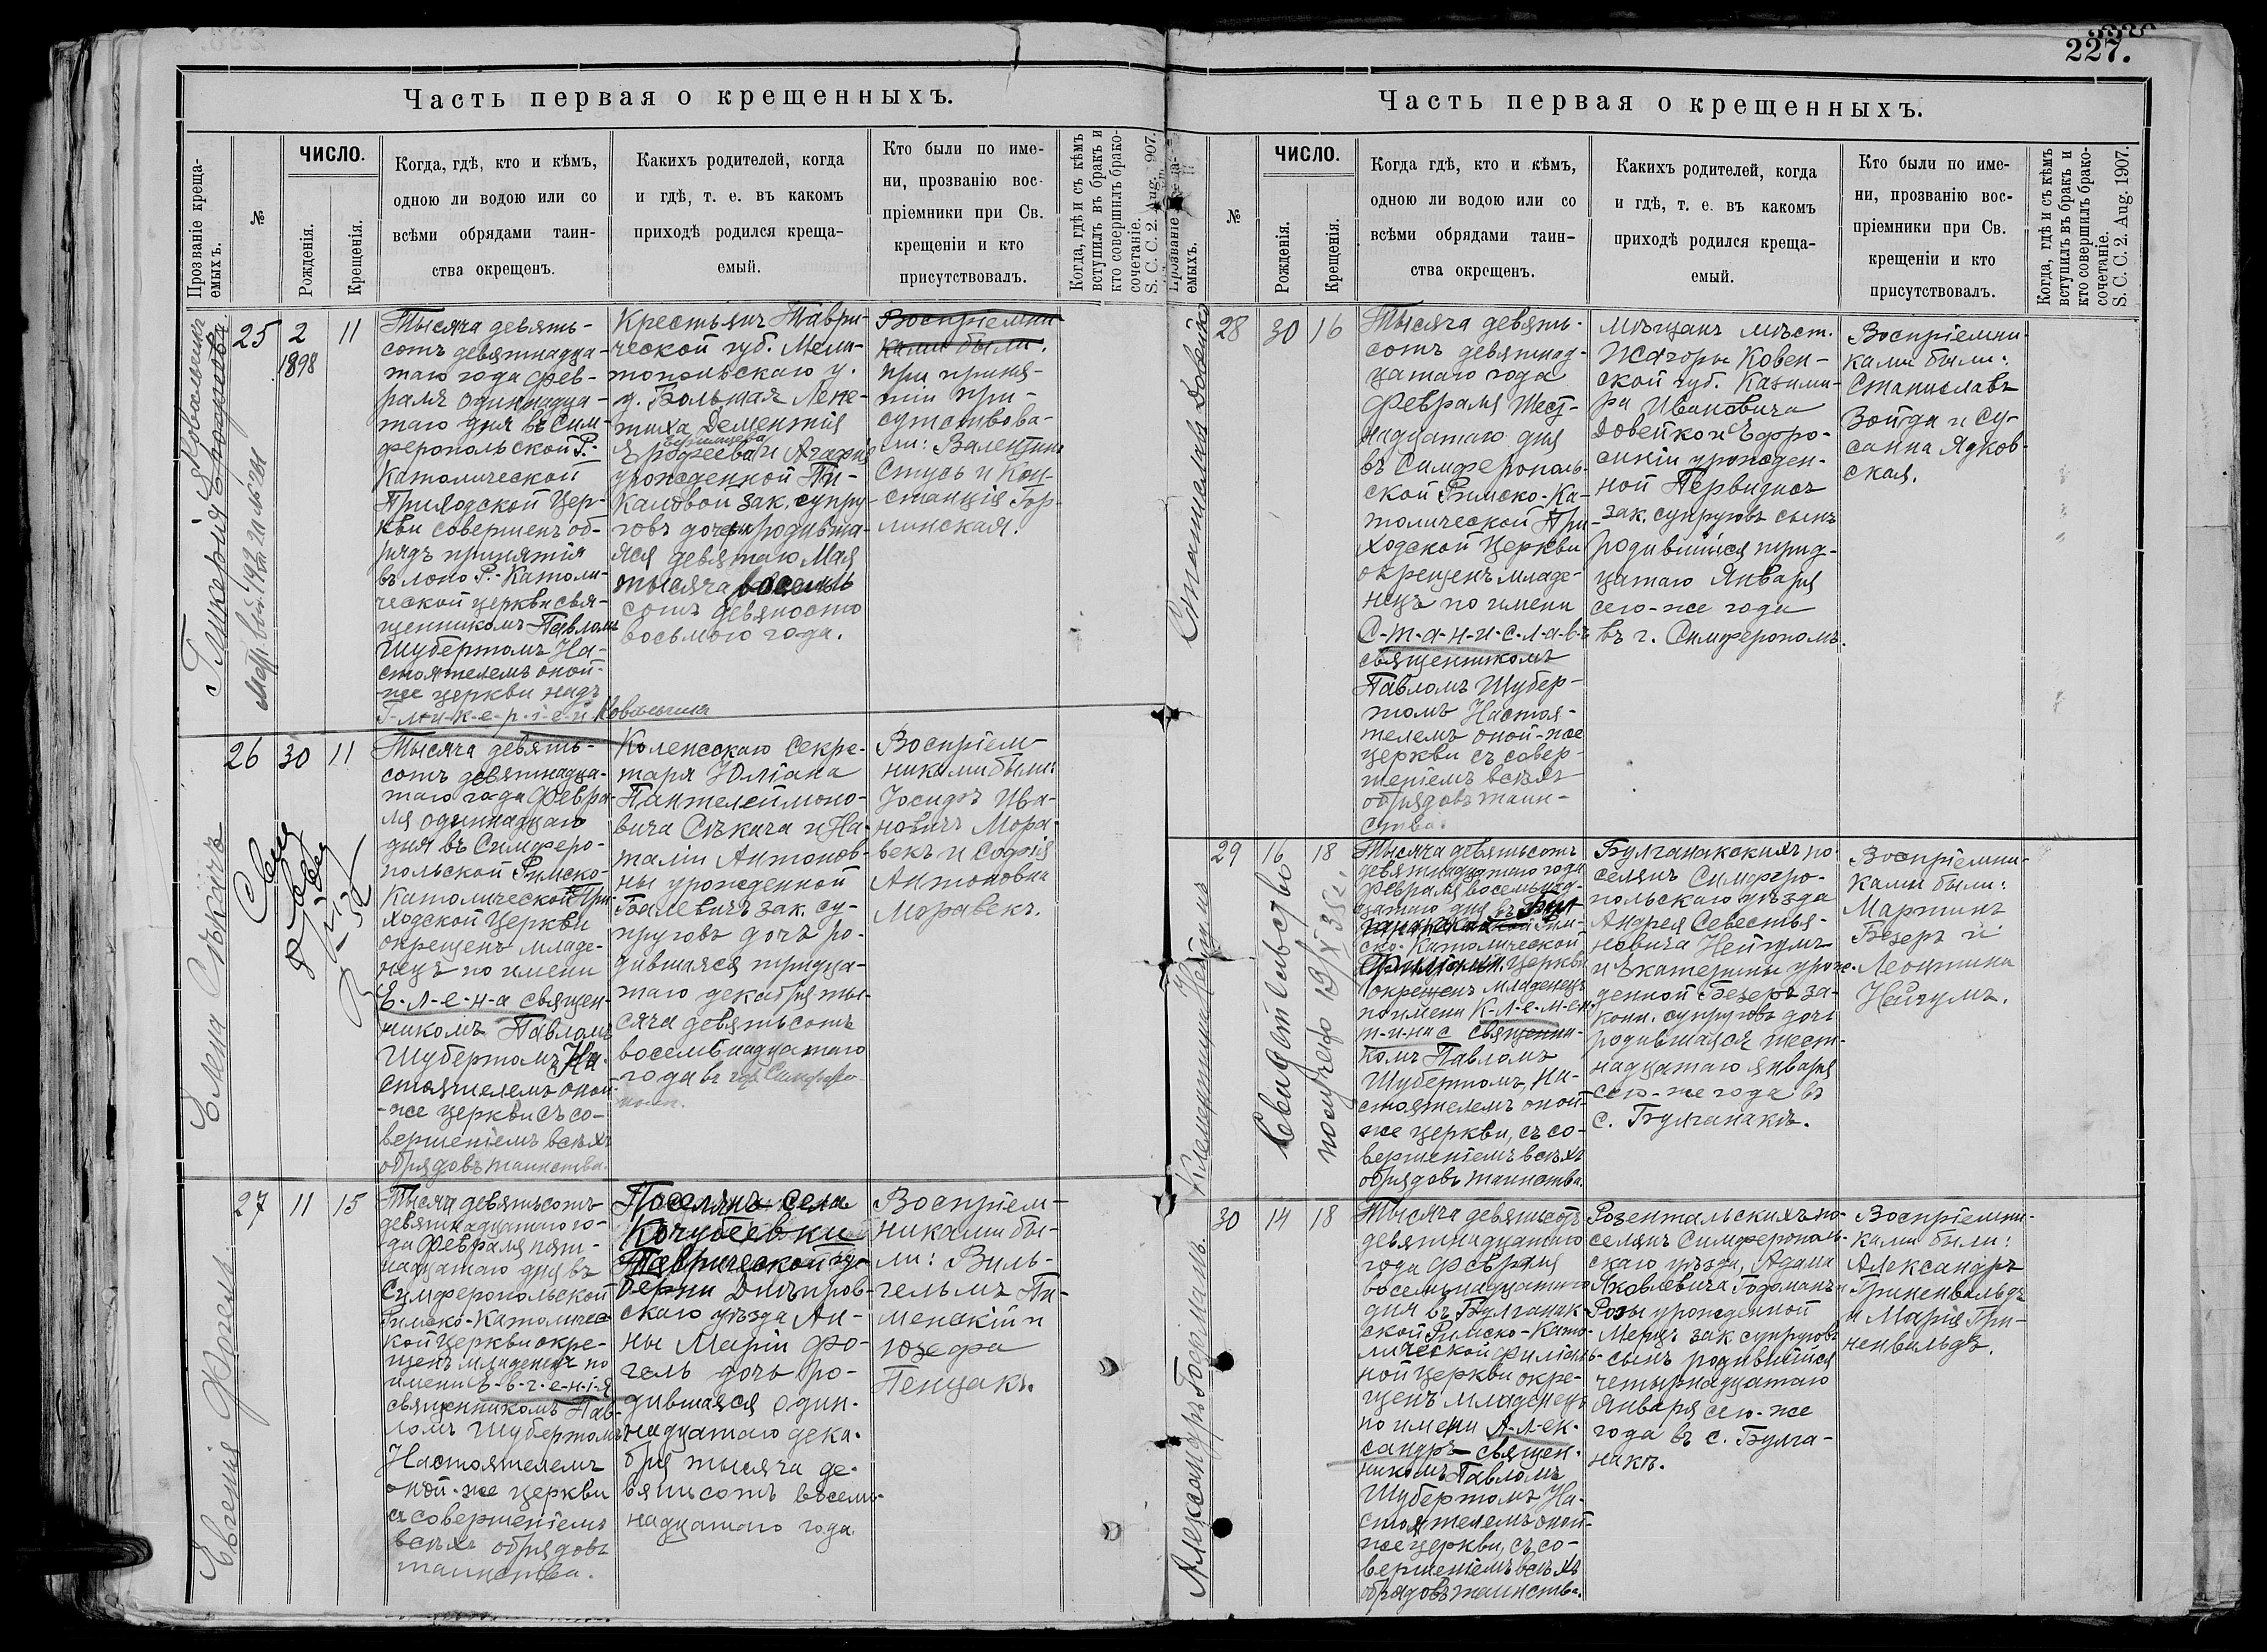 227.
Часть первая о крещенныхъ.
Прозваніе креща-
емыхъ.
№
ЧИСЛО.
Рожденія.
Крещенія.
Когда, гдѣ, кто и кѣмъ,
одною ли водою или со
всѣми обрядами таин-
ства окрещенъ.
Какихъ родителей, когда
и гдѣ, т. е. въ какомъ
приходѣ родился креща-
емый.
Кто были по име-
ни, прозванію вос-
пріемники при Св.
крещеніи и кто
присутствовалъ.
Когда, гдѣ и съ кѣмъ
вступилъ въ бракъ и
кто совершилъ брако-
сочетаніе.
S. C. C. 2. Aug. 907.
Гликерія
25
2
1898
11
Тысяча девять-
сотъ девятнадца-
таго года фев-
раля одиннадца-
таго дня въ Сим-
феропольской Р.-
Католической
Приходской Цер-
кви совершенъ об-
рядъ принятія
въ лоно Р.-Католи-
ческой церкви свя-
щенникомъ Павломъ
Шубертомъ На-
стоятелемъ оной-
-же церкви надъ
Г-л-и-к-е-р-і-е-й
Крестьянъ Таври-
ческой губ. Мели-
топольскаго у.
д. Большая Лепе-
тиха Дементія
Ерофеева и Агафіи
урожденной Пи-
каловой зак. супру-
говъ дочь родивша-
яся девятаго Мая
тысяча восемь
сотъ девяносто
восьмого года.
Воспріемни-
ками были:
При приня-
тіи при-
сутствова-
ли: Валентинъ
Стусь и Кон-
станція Гор-
линская.
Елена Сѣкачъ
26
30
11
Тысяча девять-
сотъ девятнадца-
таго года Февра-
ля одиннадцаго
дня въ Симферо-
польской Римско-
Католической При-
ходской Церкви
окрещенъ младе-
нецъ по имени
Е-л-е-н-а священ-
никомъ Павломъ
Шубертомъ На-
стоятелемъ оной-
-же церкви съ со-
вершеніемъ всѣхъ
обрядовъ таинства.
Коллежскаго Секре-
таря Юліана
Пантелеймоно-
вича Сѣкача и На-
таліи Антонов-
ны урожденной
зак. су-
пруговъ дочь ро-
дившаяся тридца-
таго декабря ты-
сяча девятьсотъ
восемьнадцатаго
года въ гор. Симферо-
Воспріем-
никами были:
Іосифъ Ива-
новичъ Мора-
векъ и Софія
Антоновна
Моравекъ.
Евгенія Фогель.
27
11
15
Тысяча девятьсотъ
девятнадцатаго го-
да Февраля пят-
надцатаго дня въ
Симферопольской
Римско-Католичес-
кой церкви окре-
щенъ младенецъ по
имени Е-в-г-е-н-і-я
священникомъ Пав-
ломъ Шубертомъ
Настоятелемъ
оной-же церкви
съ совершеніемъ
всѣхъ обрядовъ
таинства.
Поселянъ села
Кочубеевки
Таврической гу-
берніи Днѣпров-
скаго уѣзда Ан-
ны Маріи Фо-
гель дочь ро-
дившаяся один-
надцатаго дека-
бря тысяча де-
вятьсотъ восемь-
надцатаго года.
Воспріем-
никами бы-
ли: Виль-
гельмъ Пи-
менскій и
Юзефа
Пенцакъ.
Часть первая о крещенныхъ.
Прозваніе креща-
емыхъ.
№
ЧИСЛО.
Рожденія.
Крещенія.
Когда гдѣ, кто и кѣмъ,
одною ли водою или со
всѣми обрядами таин-
ства окрещенъ.
Какихъ родителей, когда
и гдѣ, т. е. въ какомъ
приходѣ родился креща-
емый.
Кто были по име-
ни, прозванію вос-
пріемники при Св.
крещеніи и кто
присутствовалъ.
Когда, гдѣ и съ кѣмъ
вступилъ въ бракъ и
кто совершилъ брако-
сочетаніе.
S. C. C. 2. Aug. 1907.
Станиславъ Довейко
28
30
16
Тысяча девять-
сотъ девятнад-
цатаго года
Февраля шест-
надцатаго дня
въ Симферополь-
ской Римско-Ка-
толической При-
ходской Церкви
окрещенъ младе-
нецъ по имени
С-т-а-н-и-с-л-а-в-ъ
священникомъ
Павломъ Шубер-
томъ Настоя-
телемъ оной-же
церкви съ совер-
шеніемъ всѣхъ
обрядовъ таин-
ства.
Мѣщанъ мѣст.
Жагоры Ковен-
ской губ. Казими-
ра Ивановича
Довейко и Ефро-
синіи урожден-
ной Первидисъ
зак. супруговъ сынъ
родившійся трид-
цатаго Января
сего-же года
въ г. Симферополѣ.
Воспріемни-
ками были:
Станиславъ
Войда и Су-
санна Ядков-
ская.
Клементина Нейгумъ
29
16
18
Свидетельство
получено
Тысяча девятьсотъ
девятнадцатаго года
Февраля восемьнад-
цатаго дня въ Бул-
ганакской Рим-
ско-Католической
церкви
окрещенъ младенецъ
по имени К-л-е-м-е-н-
т-и-н-а священни-
комъ Павломъ
Шубертомъ, На-
стоятелемъ оной-
же церкви, съ со-
вершеніемъ всѣхъ
обрядовъ таинства.
Булганакскихъ по-
селянъ Симферо-
польскаго уѣзда
Андрея Севестья-
новича Нейгумъ
и Екатерины урож-
денной Безеръ за-
конн. супруговъ дочь
родившаяся шест-
надцатаго января
сего-же года въ
с. Булганакѣ.
Воспріемни-
ками были:
Мартинъ
Безеръ и
Леонтина
Нейгумъ.
Александръ Годоманъ.
30
14
18
Тысяча девятьсотъ
девятнадцатаго
года Февраля
восемьнадцатаго
дня въ Булганак-
ской Римско-Като-
лической филіаль-
ной церкви окре-
щенъ младенецъ
по имени А-л-ек-
сандръ священ-
никомъ Павломъ
Шубертомъ На-
стоятелемъ оной-
же церкви, съ со-
вершеніемъ всѣхъ
обрядовъ таинства.
Розентальскихъ по-
селянъ Симферополь-
скаго уѣзда, Адама
Яковлевича Годоманъ и
Розы урожденной
Мерцъ зак супруговъ
сынъ родившійся
четырнадцатаго
Января сего-же
года въ с. Булга-
накѣ.
Воспріемни-
ками были:
Александръ
Гриненвальдъ
и Марія Гри-
ненвальдъ.